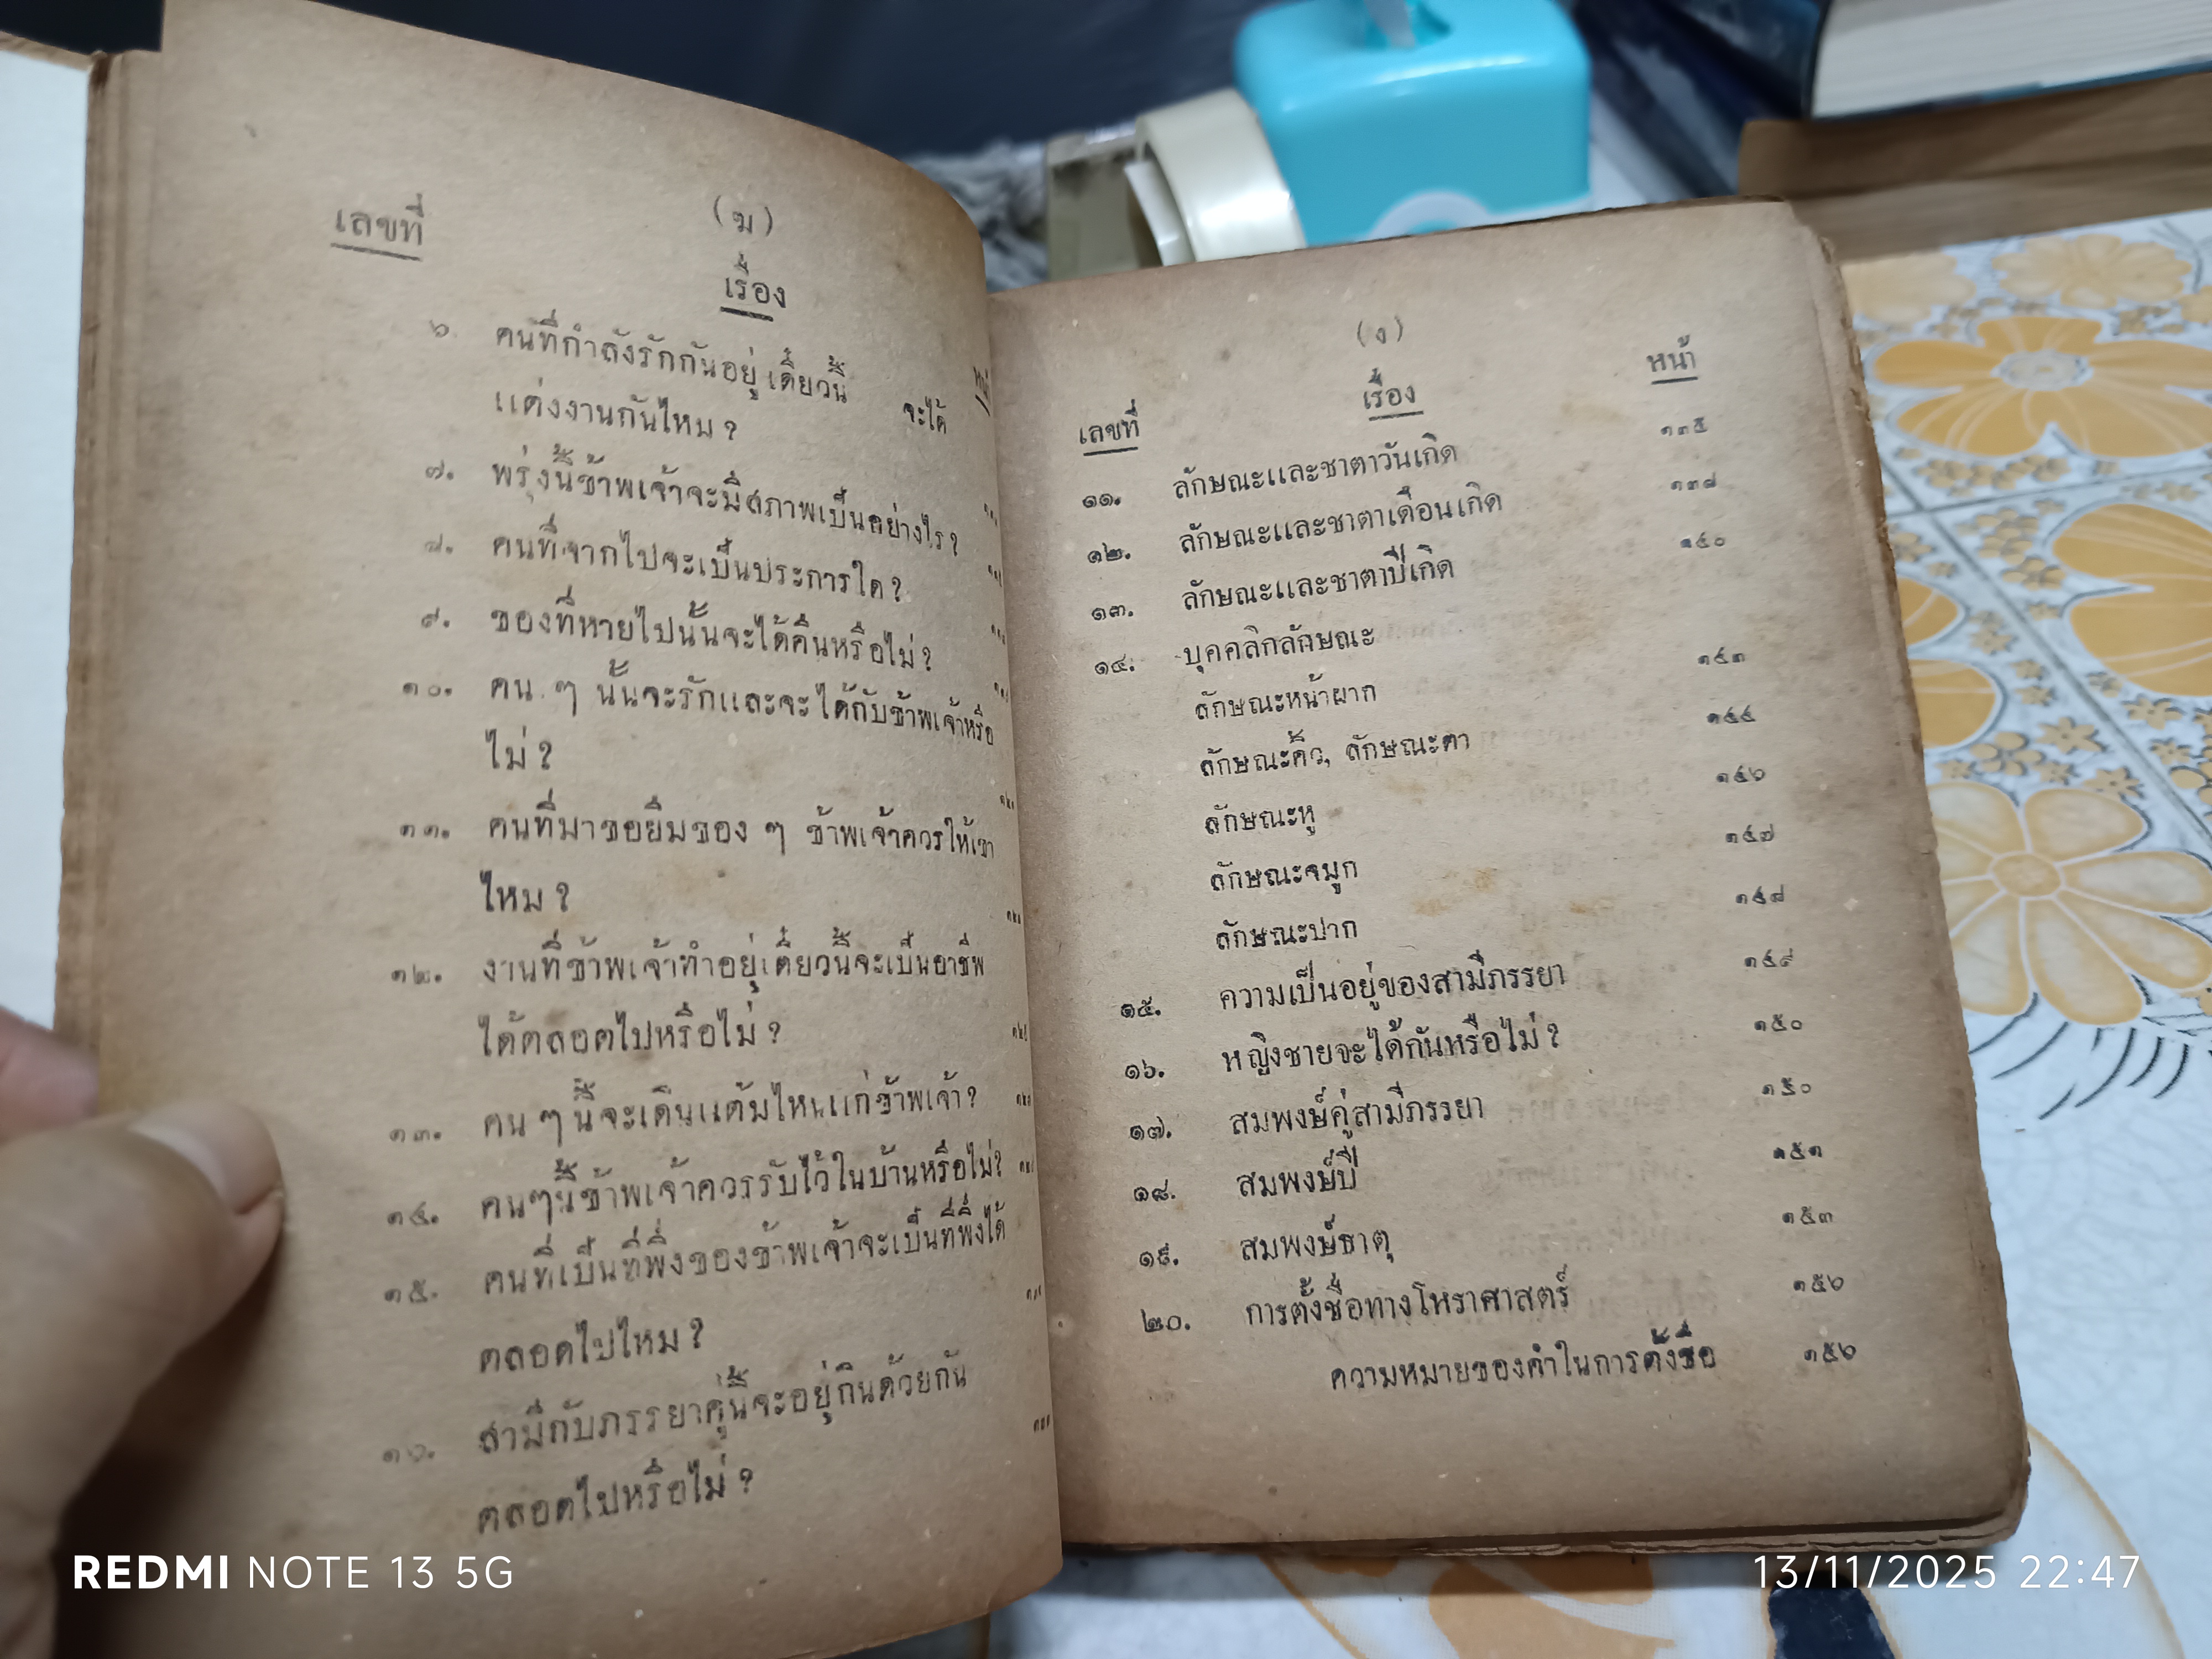 (ฆ)
เลขที่
เรื่อง
๖. คนที่กำลังรักกันอยู่เดี๋ยวนี้ จะได้
แต่งงานกันไหม ?
๗. พรุ่งนี้ข้าพเจ้าจะมีสภาพเป็นอย่างไร ?
๘. คนที่จากไปจะเป็นประการใด ?
๙. ของที่หายไปนั้นจะได้คืนหรือไม่ ?
๑๐. คน ๆ นั้นจะรักและจะได้กับข้าพเจ้าหรือ
ไม่ ?
๑๑. คนที่มาขอยืมของ ๆ ข้าพเจ้าควรให้เขา
ไหม ?
๑๒. งานที่ข้าพเจ้าทำอยู่เดี๋ยวนี้จะเป็นอาชีพ
ได้ตลอดไปหรือไม่ ?
๑๓. คน ๆ นี้จะเดินแต้มไหนแก่ข้าพเจ้า ?
๑๔. คนๆนี้ข้าพเจ้าควรรับไว้ในบ้านหรือไม่ ?
๑๕. คนที่เป็นที่พึ่งของข้าพเจ้าจะเป็นที่พึ่งได้
ตลอดไปไหม ?
๑๖. สามีกับภรรยาคู่นี้จะอยู่กินด้วยกัน
ตลอดไปหรือไม่ ?
(ง)
เลขที่ เรื่อง หน้า
๑๑. ลักษณะและชาตาวันเกิด ๑๓๕
๑๒. ลักษณะและชาตาเดือนเกิด ๑๓๗
๑๓. ลักษณะและชาตาปีเกิด ๑๔๐
๑๔. บุคคลิกลักษณะ
ลักษณะหน้าผาก ๑๔๓
ลักษณะคิ้ว, ลักษณะตา ๑๔๔
ลักษณะหู ๑๔๖
ลักษณะจมูก ๑๔๗
ลักษณะปาก ๑๔๘
๑๕. ความเป็นอยู่ของสามีภรรยา ๑๔๙
๑๖. หญิงชายจะได้กันหรือไม่ ? ๑๕๐
๑๗. สมพงษ์คู่สามีภรรยา ๑๕๐
๑๘. สมพงษ์ปี ๑๕๑
๑๙. สมพงษ์ธาตุ ๑๕๓
๒๐. การตั้งชื่อทางโหราศาสตร์ ๑๕๖
ความหมายของคำในการตั้งชื่อ ๑๕๖
REDMI NOTE 13 5G
13/11/2025 22:47